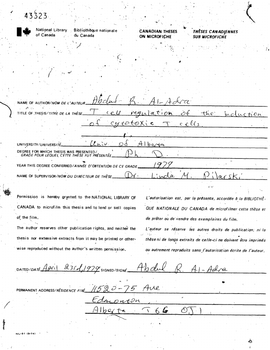 43323
National Library of Canada
Bibliothèque nationale du Canada
CANADIAN THESES ON MICROFICHE
THÈSES CANADIENNES SUR MICROFICHE
NAME OF AUTHOR/NOM DE L'AUTEUR Abdul R. Al-Adra
TITLE OF THESIS/TITRE DE LA THÈSE T cell regulation of the induction
of cytotoxic T cells
UNIVERSITY/UNIVERSITÉ Univ of Alberta
DEGREE FOR WHICH THESIS WAS PRESENTED/
GRADE POUR LEQUEL CETTE THÈSE FUT PRÉSENTÉE Ph D.
YEAR THIS DEGREE CONFERRED/ANNÉE D'OBTENTION DE CE GRADE 1979
NAME OF SUPERVISOR/NOM DU DIRECTEUR DE THÈSE Dr. Linda M. Pilarski
Permission is hereby granted to the NATIONAL LIBRARY OF
CANADA to microfilm this thesis and to lend or sell copies
of the film.
The author reserves other publication rights, and neither the
thesis nor extensive extracts from it may be printed or other-
wise reproduced without the author's written permission.
L'autorisation est, par la présente, accordée à la BIBLIOTHÈ-
QUE NATIONALE DU CANADA de microfilmer cette thèse et
de prêter ou de vendre des exemplaires du film.
L'auteur se réserve les autres droits de publication, ni la
thèse ni de longs extraits de celle-ci ne doivent être imprimés
ou autrement reproduits sans l'autorisation écrite de l'auteur.
DATED/DATÉ April 23rd 1979 SIGNED/SIGNÉ Abdul R Al-Adra
PERMANENT ADDRESS/RÉSIDENCE FIXE 11520-75 Ave
Edmonton
Alberta T6G 0J1